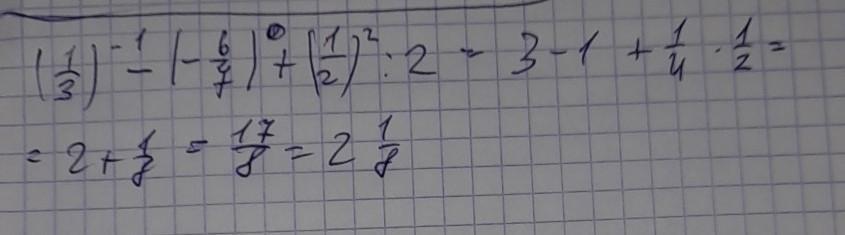 (1/3)⁻¹ - (-6/7)⁰ + (1/2)² : 2 = 3 - 1 + 1/4 · 1/2 =
= 2 + 1/8 = 17/8 = 2 1/8